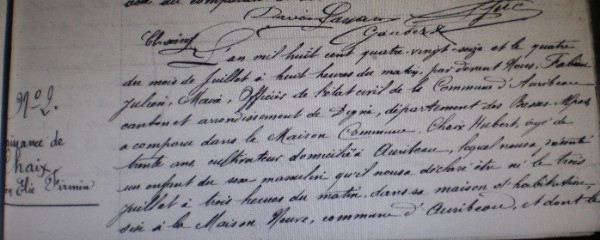 L'an mil huit cent quatre-vingt-seize et le quatre
du mois de Juillet à huit heures du matin, par devant Nous, Fabien
Julien, Maire, Officier de l'état civil de la Commune d'Auribeau
canton et arrondissement de Digne, département des Basses Alpes
a comparu dans la Maison Commune, Chaix Hubert, âgé de
trente ans, cultivateur domicilié à Auribeau, lequel nous a présenté
un enfant du sexe masculin qu'il nous a déclaré être né le trois
juillet à trois heures du matin, dans sa maison d'habitation
sise à la Maison Neuve, commune d'Auribeau, et dont il
N° 2.
Naissance de
Chaix
Elie Firmin